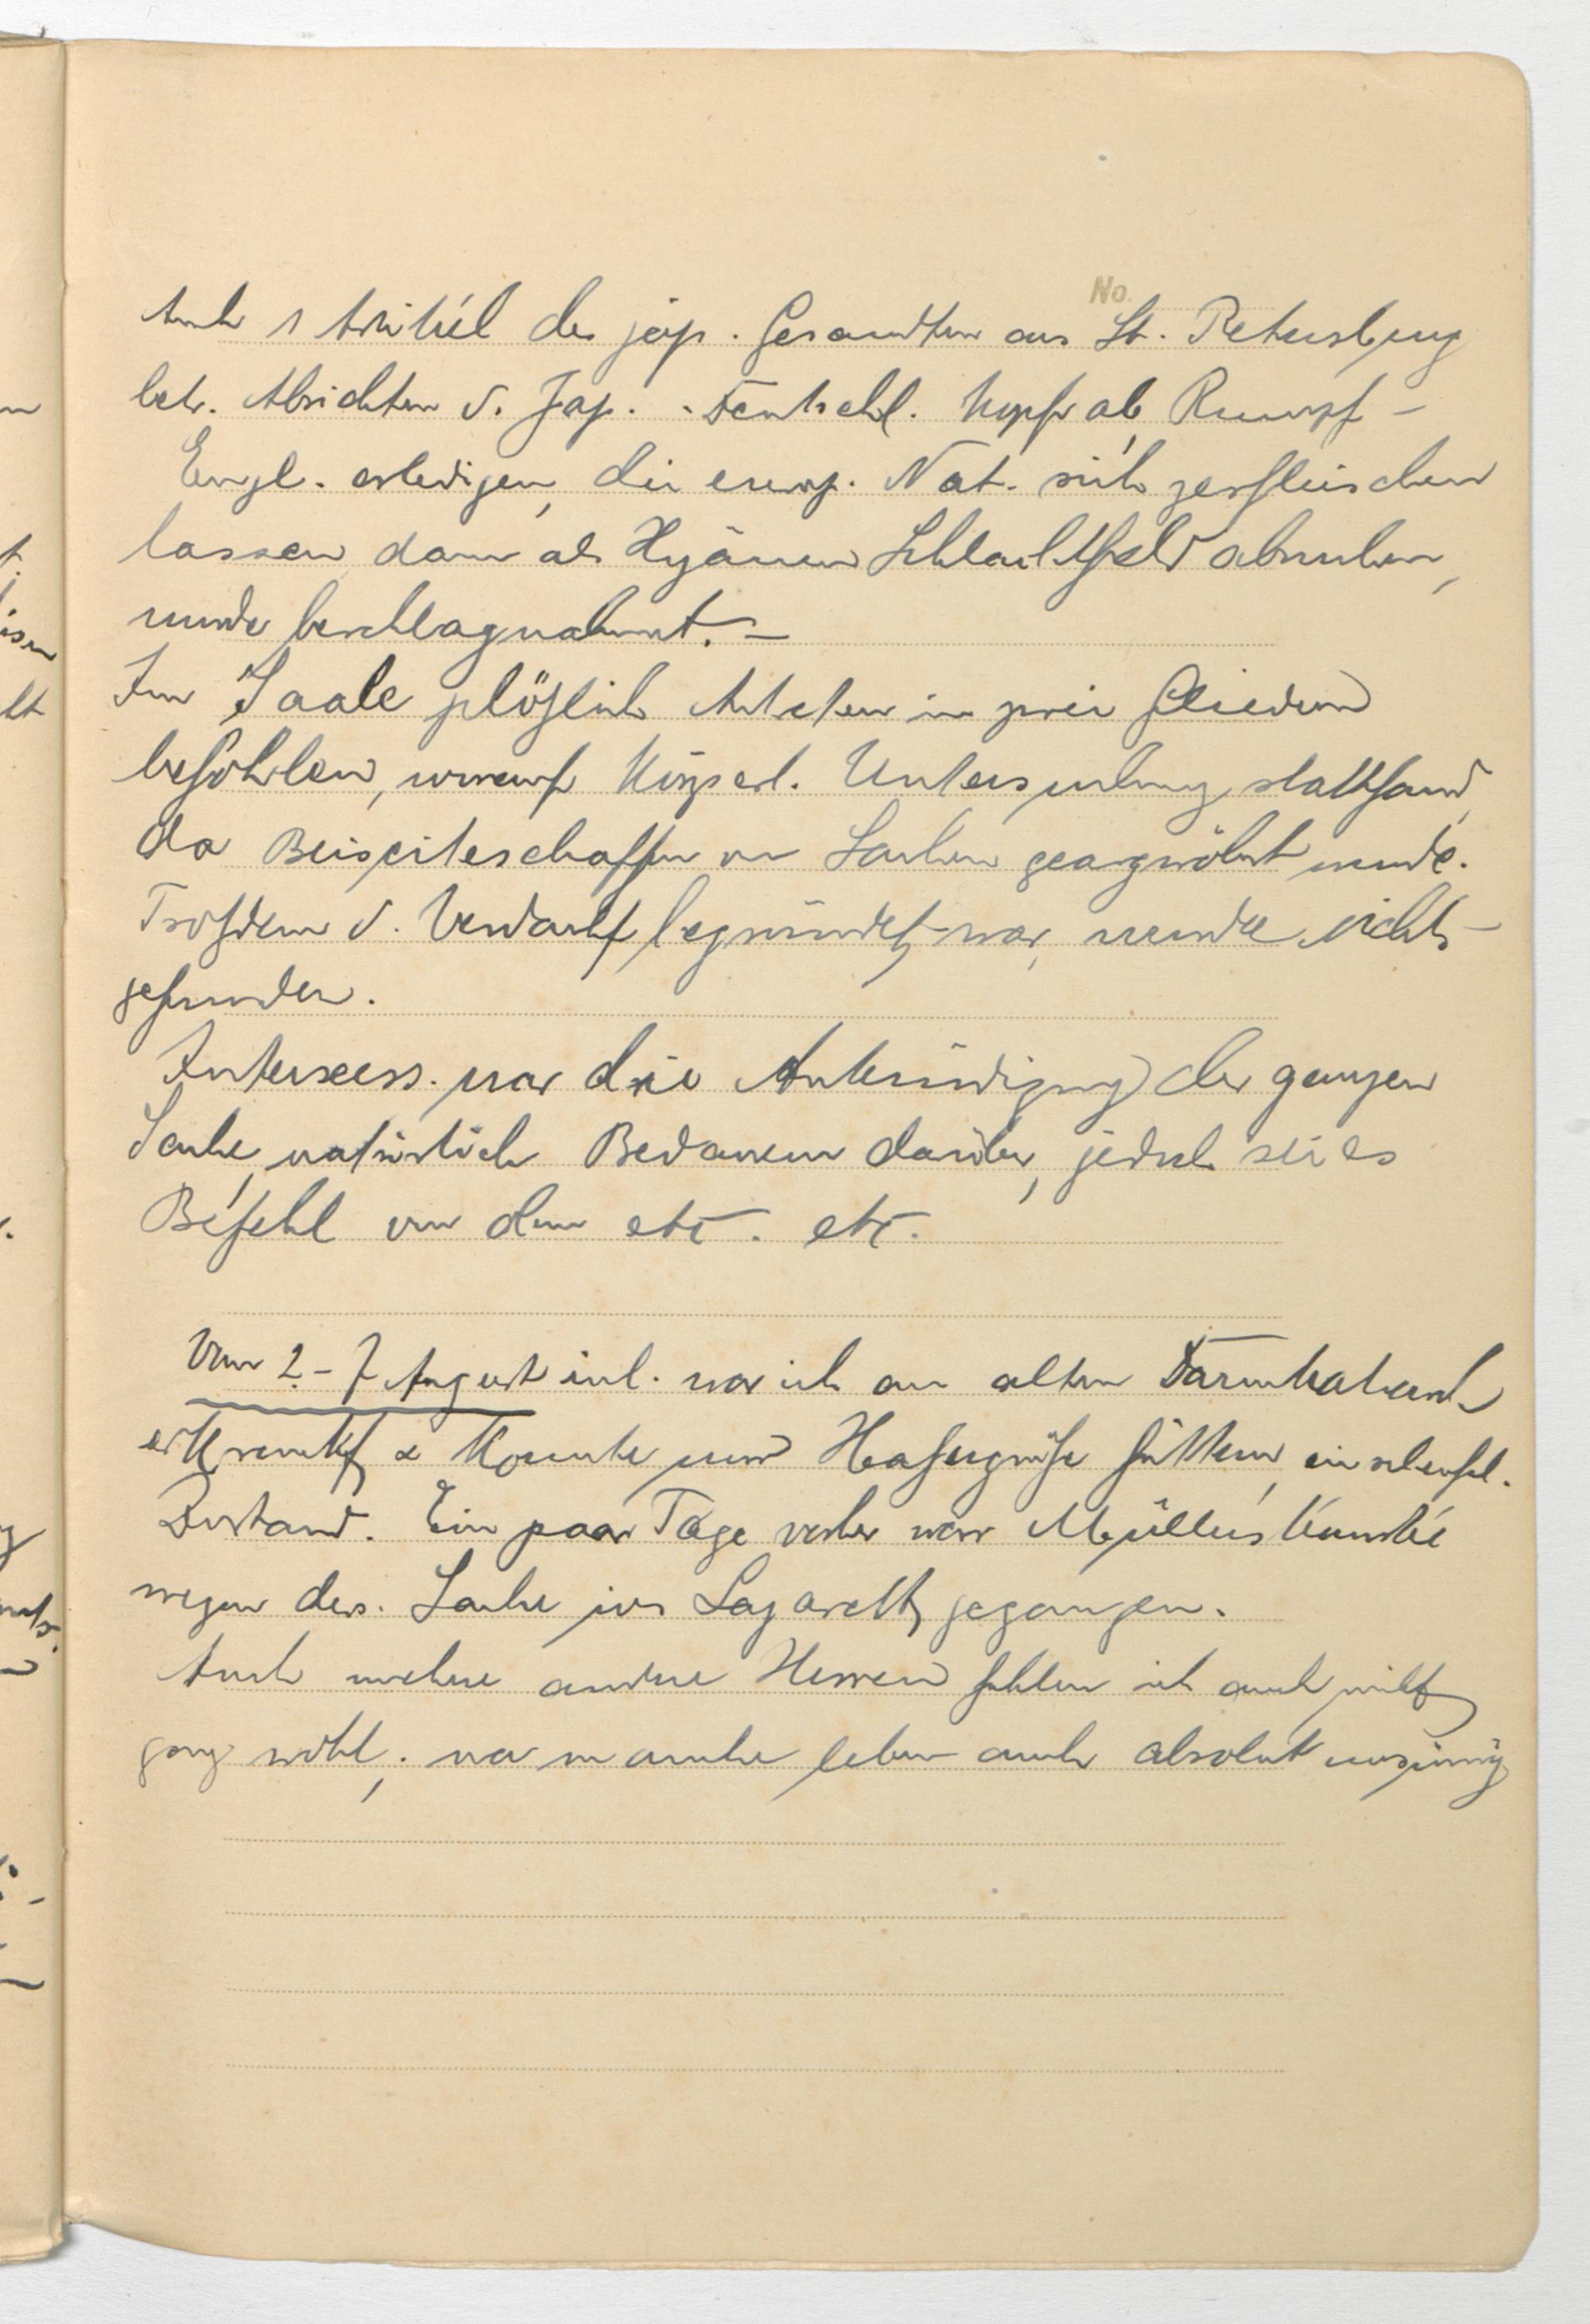 No.
Auch 1 Artikel des jap. Gesandten aus St. Petersburg
betr. Absichten d. Jap. Deutschl. Kopf ab, Rumpf –
Engl. erledigen, die europ. Nat. sich zerfleischen
lassen, dann als Hyänen Schlachtfeld absuchen,
wurde beschlagnahmt. –
Im Saale plötzlich Antreten in zwei Gliedern
befohlen, worauf Körperl. Untersuchung stattfand,
da Beiseiteschaffen von Sachen geargwöhnt wurde.
Trotzdem d. Verdacht begründet war, wurde nichts
gefunden.
Interess. war die Ankündigung der ganzen
Sache, natürlich Bedauern darüber, jedoch sei es
Befehl von dem etc. etc.
Vom 2.–7 August incl. war ich an altem Darmkatarrh
erkrankt & konnte nur Hafergrütze füttern, ein scheußl.
Zustand. Ein paar Tage vorher war Müllerskowski
wegen ders. Sache ins Lazarett gegangen.
Auch mehrere andere Herren fühlen sich auch nicht
ganz wohl, manche leben auch absolut unsinnig